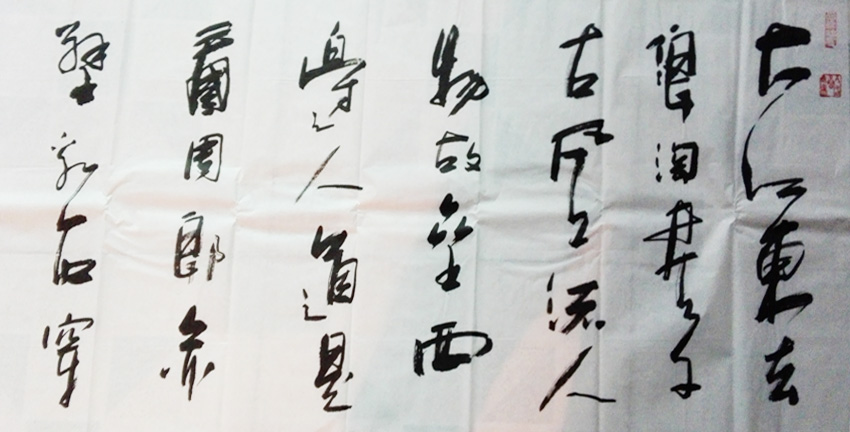 大江東去
浪淘盡千
古風流人
物故壘西
邊人道是
三國周郎赤
壁亂石穿